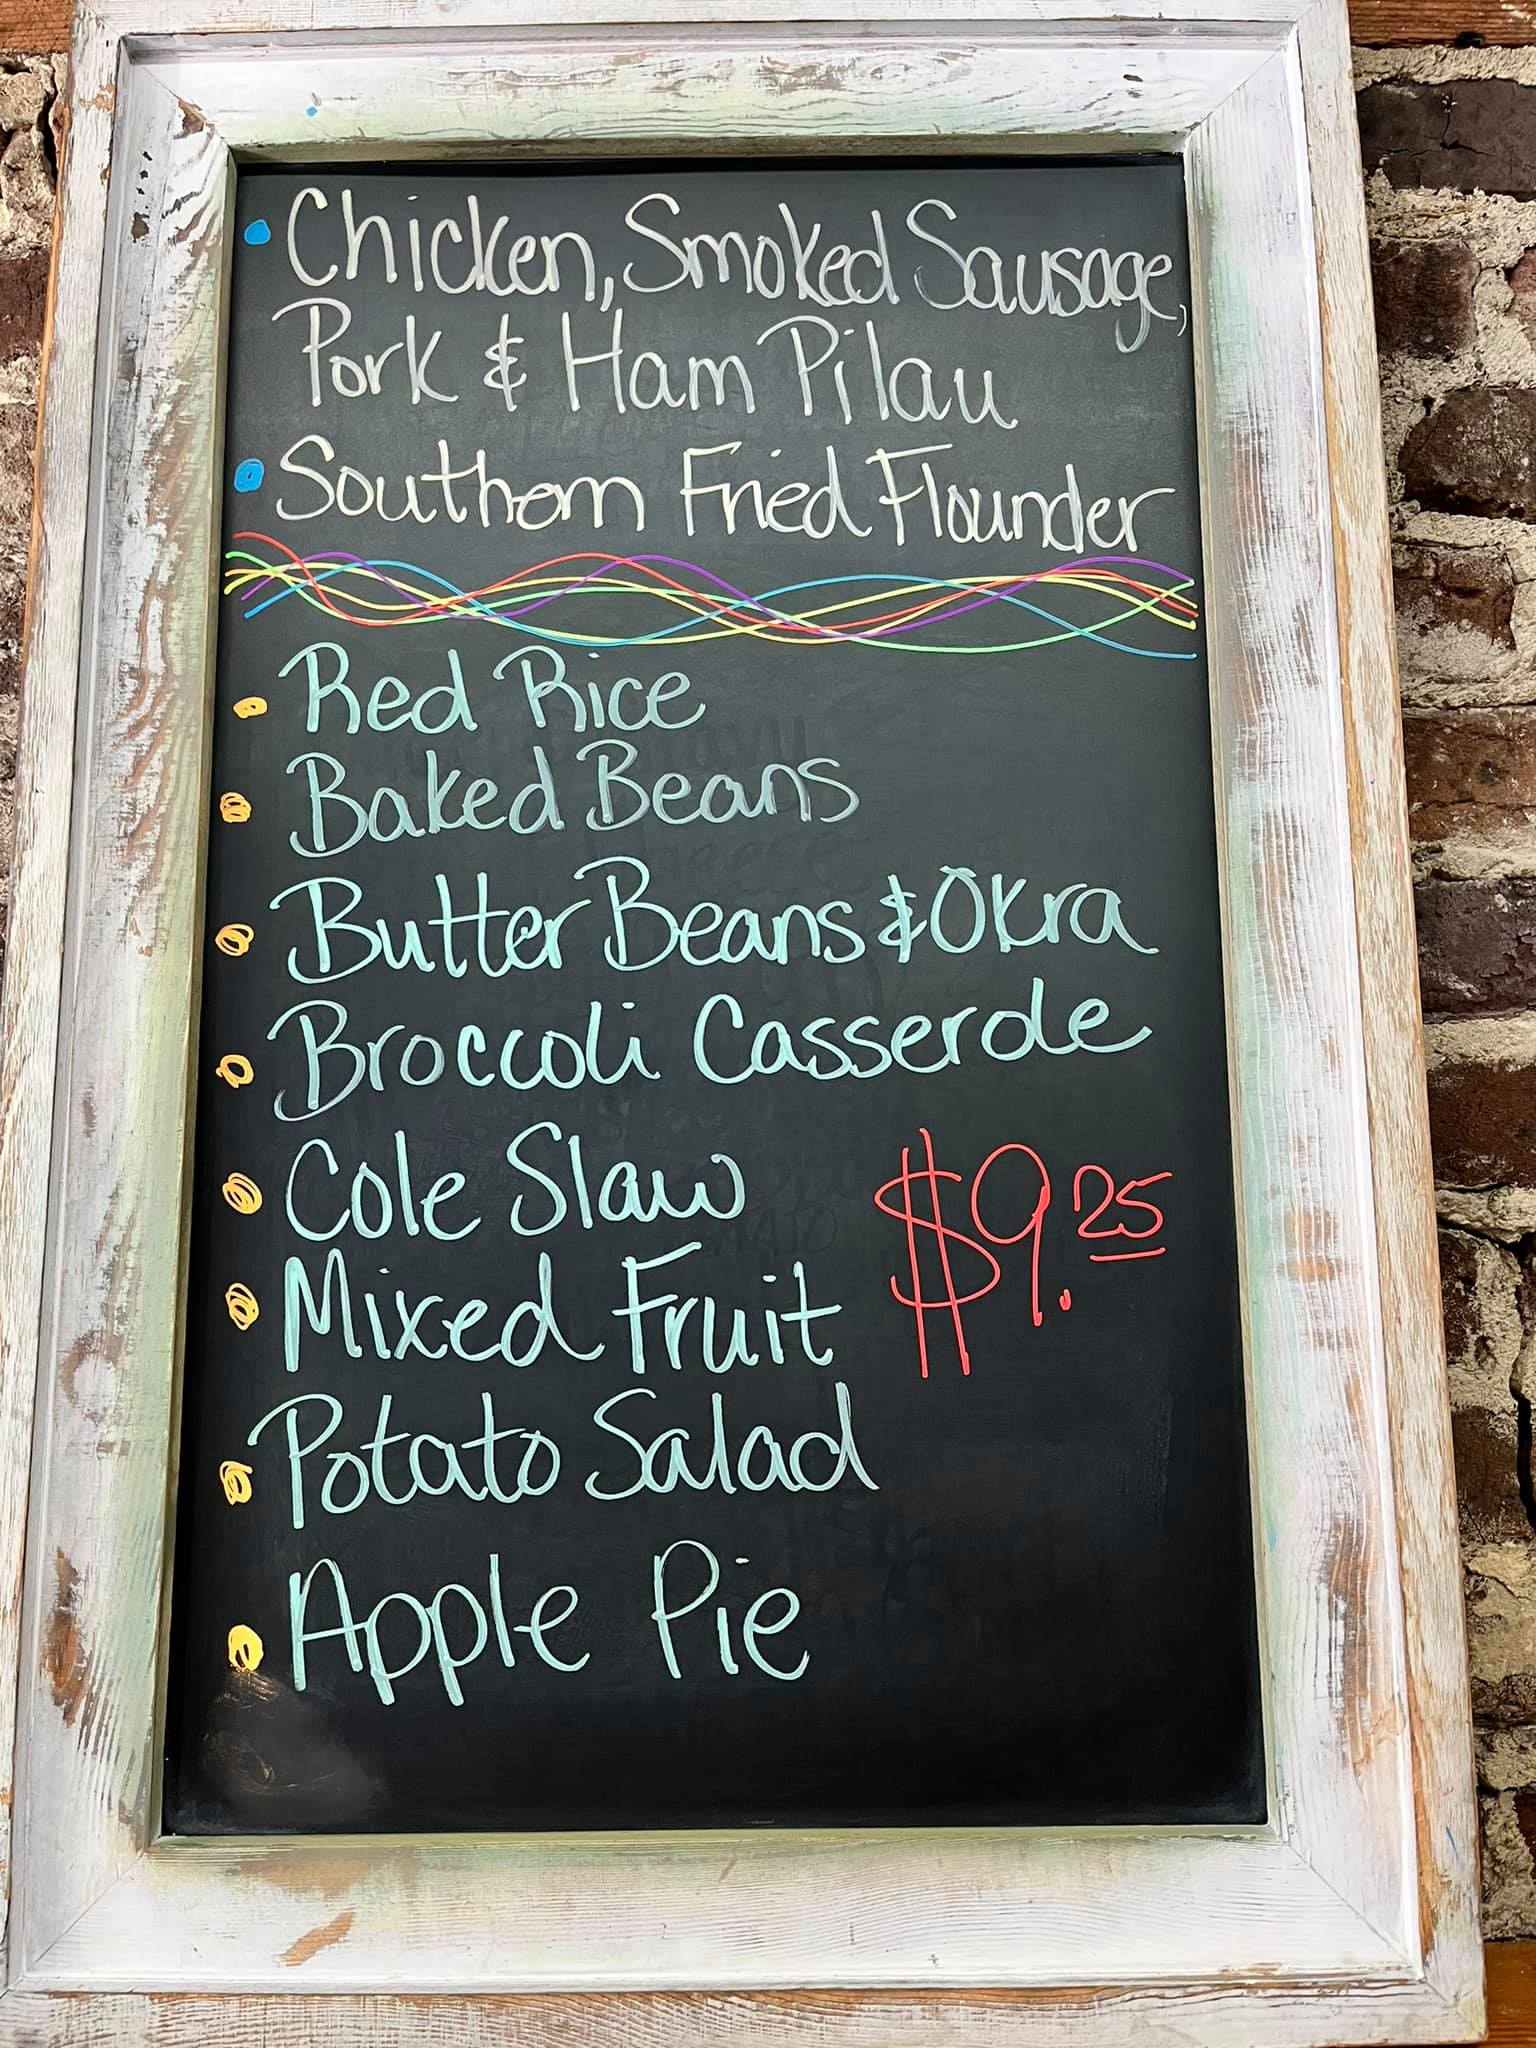 Chicken, Smoked Sausage,
Pork & Ham Pilau
Southern Fried Flounder
Red Rice
Baked Beans
Butter Beans & Okra
Broccoli Casserole
Cole Slaw
$9.25
Mixed Fruit
Potato Salad
Apple Pie